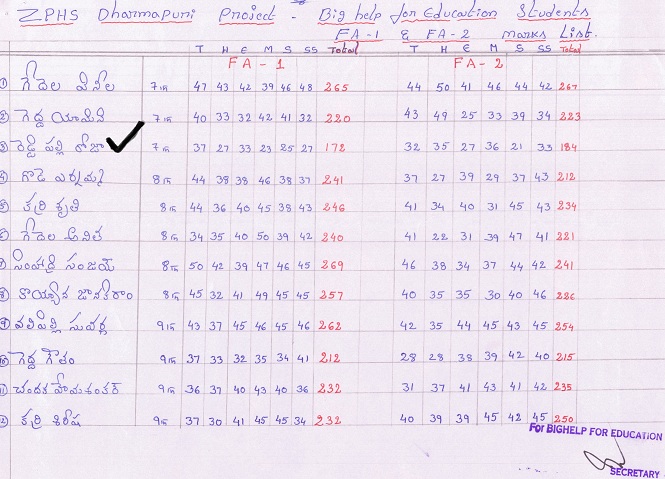 ZPHS Dharmapuri Project - Big help for Education Students
FA-1 & FA-2 marks List.
T H E M S SS Total T H E M S SS Total
FA-1 FA-2
① గేదెల వినీల 7th 47 43 42 39 46 48 265 44 50 41 46 44 42 267
② గెద్ద యామిని 7th 40 33 32 42 41 32 220 43 49 25 33 39 34 223
③ రెడ్డి పల్లి రోజా 7th 37 27 33 23 25 27 172 32 35 27 36 21 33 184
④ 8th 44 38 38 46 38 37 241 37 27 39 29 37 43 212
⑤ కర్రి శృతి 8th 44 36 40 45 38 43 246 41 34 40 31 45 43 234
⑥ గేదెల అనిత 8th 34 35 40 50 39 42 240 41 22 31 39 47 41 221
⑦ సింహాద్రి సంజయ్ 8th 50 42 39 47 46 45 269 46 38 34 37 44 42 241
⑧ జానకిరాం 8th 45 32 41 49 45 45 257 40 35 35 30 40 46 226
⑨ వలిపిల్లి సువర్ణ 9th 43 37 45 46 45 46 262 42 35 44 45 43 45 254
⑩ గెద్ద గౌతం 9th 37 33 32 35 34 41 212 28 28 38 39 42 40 215
⑪ చందక హేమశంకర్ 9th 36 37 40 43 40 36 232 31 37 41 43 41 42 235
⑫ కర్రి శిరీష 9th 37 30 41 45 45 34 232 40 39 39 45 42 45 250
For BIGHELP FOR EDUCATION
SECRETARY